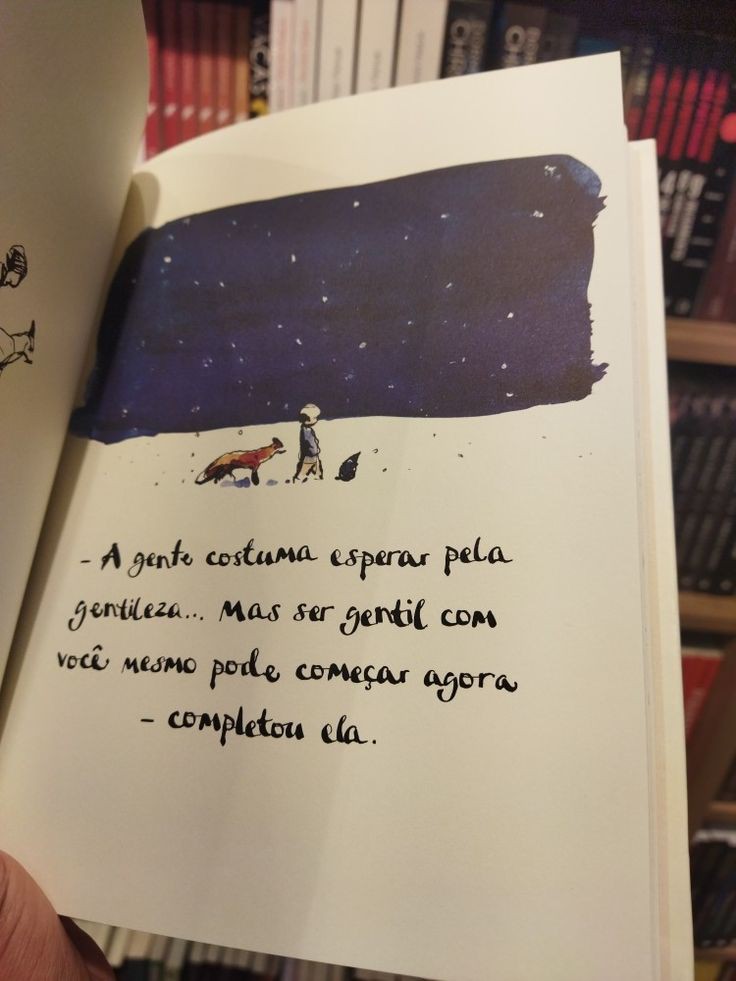 VACAS
- A gente costuma esperar pela
gentileza... Mas ser gentil com
você mesmo pode começar agora
- completou ela.